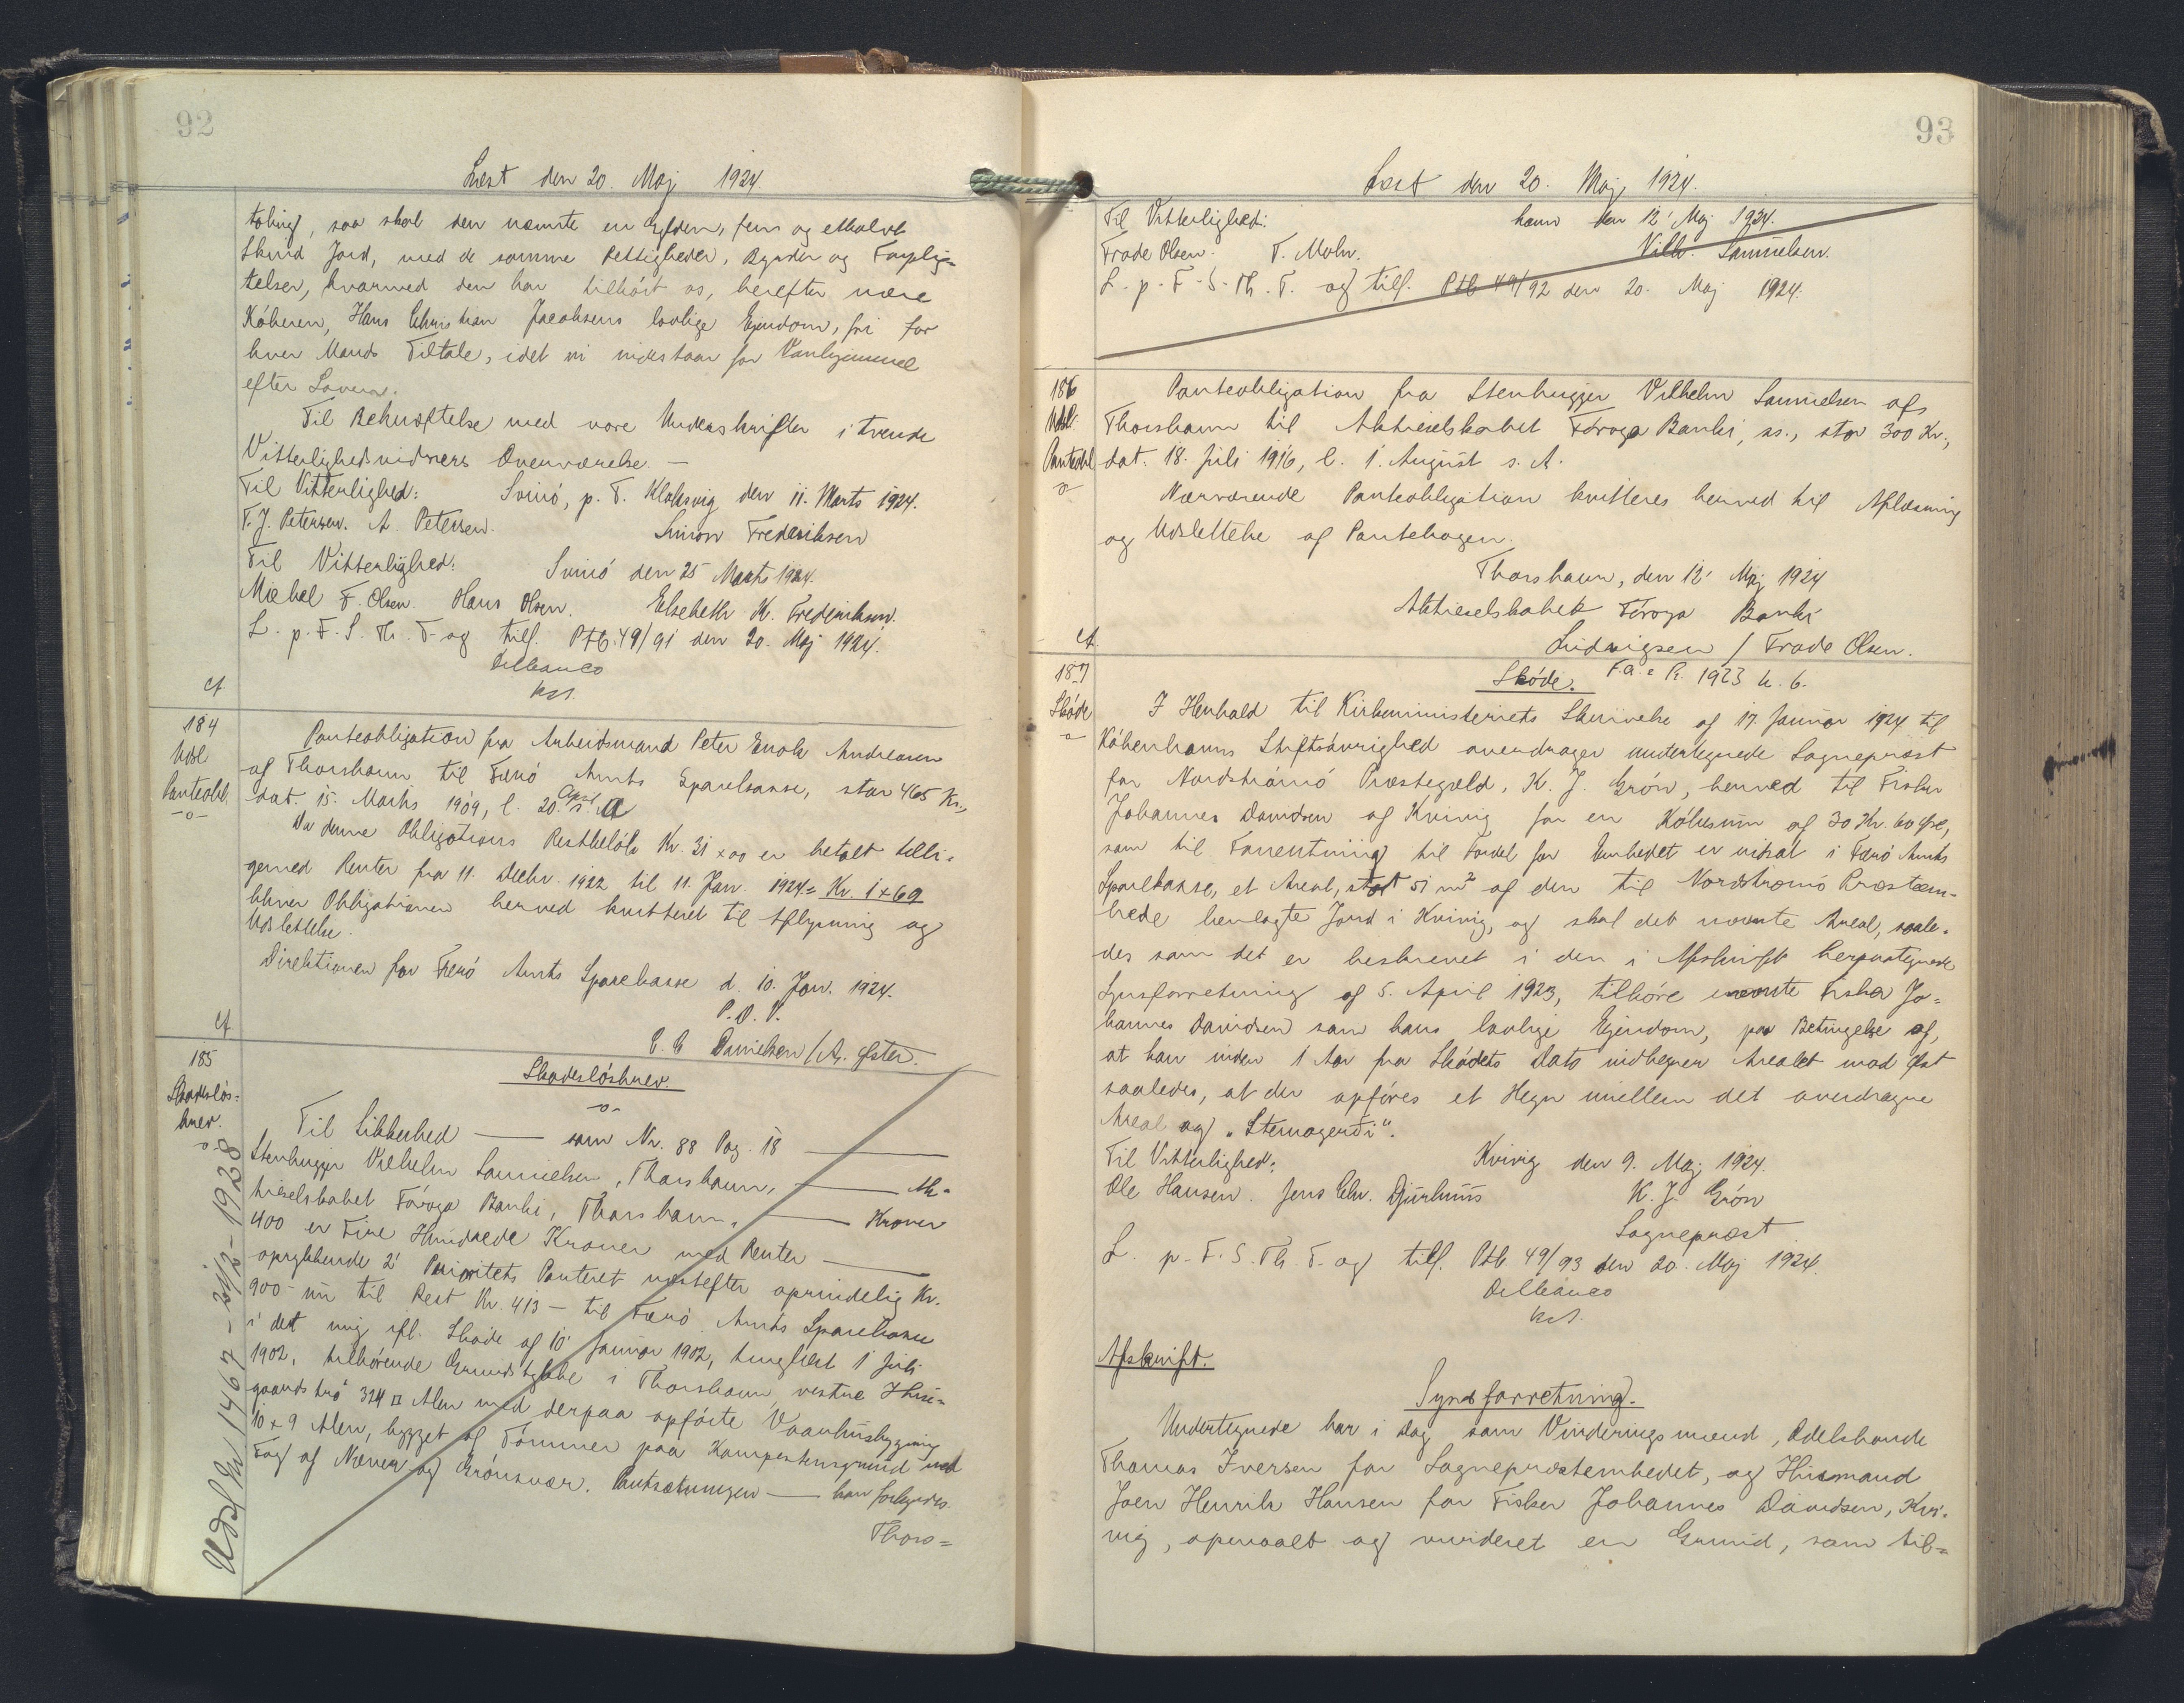 92
Læst den 20. Maj 1924
taling, saa skal den nævnte en Gylden, fem og ethalvt
Skind Jord, med de samme Rettigheder, Byrder og Forplig=
telser, hvormed den har tilhørt os, herefter være
Køberen, Hans Christian Jacobsens lovlige Ejendom, fri for
hver Mands Tiltale, idet vi indestaar for Vanhjemmel
efter Loven.
Til Bekræftelse med vore Underskrifter i tvende
Vitterlighedsvidners Overværelse. —
Til Vitterlighed: Svinö, p. T. Klaksvig den 11. Marts 1924.
T. J. Petersen. A. Petersen. Simon Frederiksen
Til Vitterlighed: Svinö den 25 Marts 1924.
Michal F. Olsen. Hans Olsen. Elsebeth K. Frederiksen.
L. p. F. S. Th. T. og tilf. Ptb. 49/91 den 20. Maj 1924.
Dellcanco
kst.
cf.
184
Udsl
Panteobl.
-o-
Panteobligation fra Arbeidsmand Peter Enok Andreasen
af Thorshavn til Færö Amts Sparekasse, stor 465 Kr.,
dat. 15. Marts 1909, l. 20. April s. A
Da denne Obligations Restbeløb Kr. 31 x 00 er betalt tilli=
gemed Renter fra 11. Decbr. 1922 til 11. Jan. 1924 = Kr. 1 x 69
bliver Obligationen herved kvitteret til Aflysning og
Udslettelse.
Direktionen for Færö Amts Sparekasse d. 10. Jan. 1924.
P. D. V.
C. C Danielsen / A. Øster.
cf
185
Skadesløs=
brev.
-o-
Udsl Nr 1467 - 31/12 - 1928
Skadesløsbrev.
-o-
Til Sikkerhed — som Nr. 88 Pag. 18 —
Stenhugger Vilhelm Samuelsen, Thorshavn, — Ak=
tieselskabet Føroya Banki, Thorshavn, — Kroner
400 er Fire Hundrede Kroner med Renter —
oprykkende 2' Prioritets Panteret næstefter oprindelig Kr.
900 - nu til Rest Kr. 413 — til Færö Amts Sparekasse
i det mig ifl. Skøde af 10' Januar 1902, tinglæst 1 Juli
1902, tilhørende Grundstykke i Thorshavn, vestre Husi=
gaardstrø 324 □ Alen med derpaa opførte Vaanhusbygning
10 x 9 Alen, bygget af Tømmer paa Kampestensgrund med
Tag af Næver og Grønsvær. Pantsætningen — kan forlydes.
Thors=
93
Læst den 20. Maj 1924.
Til Vitterlighed: havn den 12' Maj 1924.
Frode Olsen. T. Mohr. Vilh. Samuelsen.
L. p. F. S. Th. T. og tilf. Ptb 49/92 den 20. Maj 1924.
186
Udsl.
Panteobl
-o-
Panteobligation fra Stenhugger Vilhelm Samuelsen af
Thorshavn til Aktieselskabet Föroya Banki, ss., stor 300 Kr.,
dat. 18. Juli 1916, l. 1. August s. A.
Nærværende Panteobligation kvitteres herved til Aflæsning
og Udslettelse af Pantebogen.
Thorshavn, den 12' Maj 1924
Aktieselskabet Föroya Banki
Ludvigsen / Frode Olsen.
cf.
187
Skøde
-o-
Skøde. F. a. e Pr. 1923 k. 6.
I Henhold til Kirkeministeriets Skrivelse af 17. Januar 1924 til
Københavns Stiftsøvrighed overdrager undertegnede Sognepræst
for Nordstrømø Præstegæld, K. J. Grøn, herved til Fisker
Johannes Davidsen af Kvivig for en Købesum af 30 Kr. 60 Øre,
som til Forrentning til Fordel for Embedet er indsat i Færö Amts
Sparekasse, et Areal, stort 51 m² af den til Nordstrømø Præsteem=
bede henlagte Jord i Kvivig, og skal det nævnte Areal, saale=
des som det er beskrevet i den i Afskrift herpaategnede
Synsforretning af 5. April 1923, tilhøre nævnte Fisker Jo=
hannes Davidsen som hans lovlige Ejendom, paa Betingelse af,
at han inden 1 Aar fra Skødets Dato indhegner Arealet mod Øst
saaledes, at der opføres et Hegn imellem det overdragne
Areal og „Stemagerði".
Til Vitterlighed: Kvivig den 9. Maj 1924.
Ole Hansen. Jens Chr. Djurhuus K. J. Grøn
Sognepræst
L. p. F. S. Th. T. og tilf. Ptb 49/93 den 20. Maj 1924.
Dellcanco
kst.
Afskrift.
Synsforretning.
Undertegnede har i Dag som Vurderingsmænd, Odelsbonde
Thomas Iversen for Sognepræsteembedet, og Husmand
Joen Henrik Hansen for Fisker Johannes Davidsen, Kvi=
vig, opmaalt og vurderet en Grund, som til=